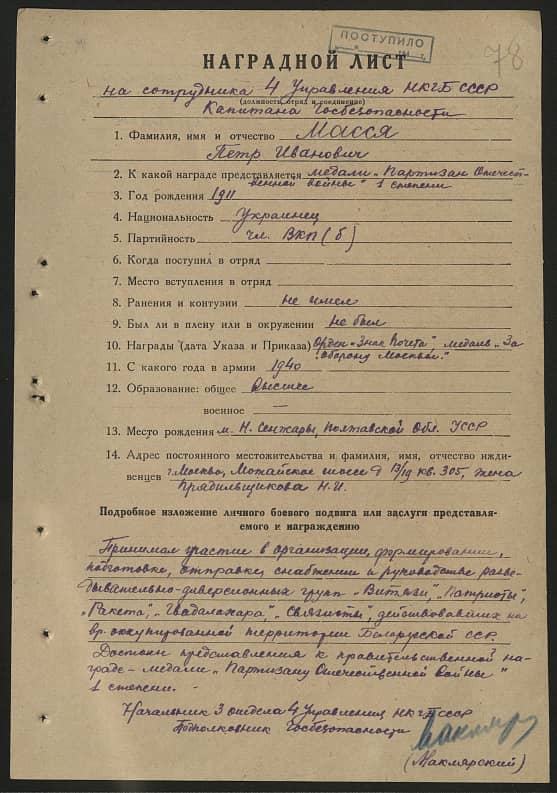 ПОСТУПИЛО
78
НАГРАДНОЙ ЛИСТ
на сотрудника 4 Управления НКГБ СССР
(должность, отряд и соединение)
Капитана Госбезопасности
1. Фамилия, имя и отчество Масся
Петр Иванович
2. К какой награде представляется медали „Партизан Отечест-
венной войны" 1 степени
3. Год рождения 1911
4. Национальность Украинец
5. Партийность чл. ВКП(б)
6. Когда поступил в отряд
7. Место вступления в отряд
8. Ранения и контузии не имел
9. Был ли в плену или в окружении не был
10. Награды (дата Указа и Приказа) Орден „Знак Почета" медаль „За
оборону Москвы."
11. С какого года в армии 1940
12. Образование: общее Высшее
военное —
13. Место рождения м. Н. Сенжары, Полтавской Обл. УССР
14. Адрес постоянного местожительства и фамилия, имя, отчество ижди-
венцев г. Москва, Можайское шоссе д 13/19 кв. 305, жена
Прядильщикова Н.И.
Подробное изложение личного боевого подвига или заслуги представля-
емого к награждению
Принимал участие в организации, формировании,
подготовке, отправке, снабжении и руководстве разве-
дывательно-диверсионных групп „Витязи", „Патриоты",
„Ракета", „Гвадалахара", „Связисты", действовавших на
вр. оккупированной территории Белорусской ССР.
Достоин представления к правительственной на-
граде – медали „Партизану Отечественной Войны"
1 степени.
Начальник 3 отдела 4 Управления НКГБ СССР
Подполковник Госбезопасности
(Маклярский)